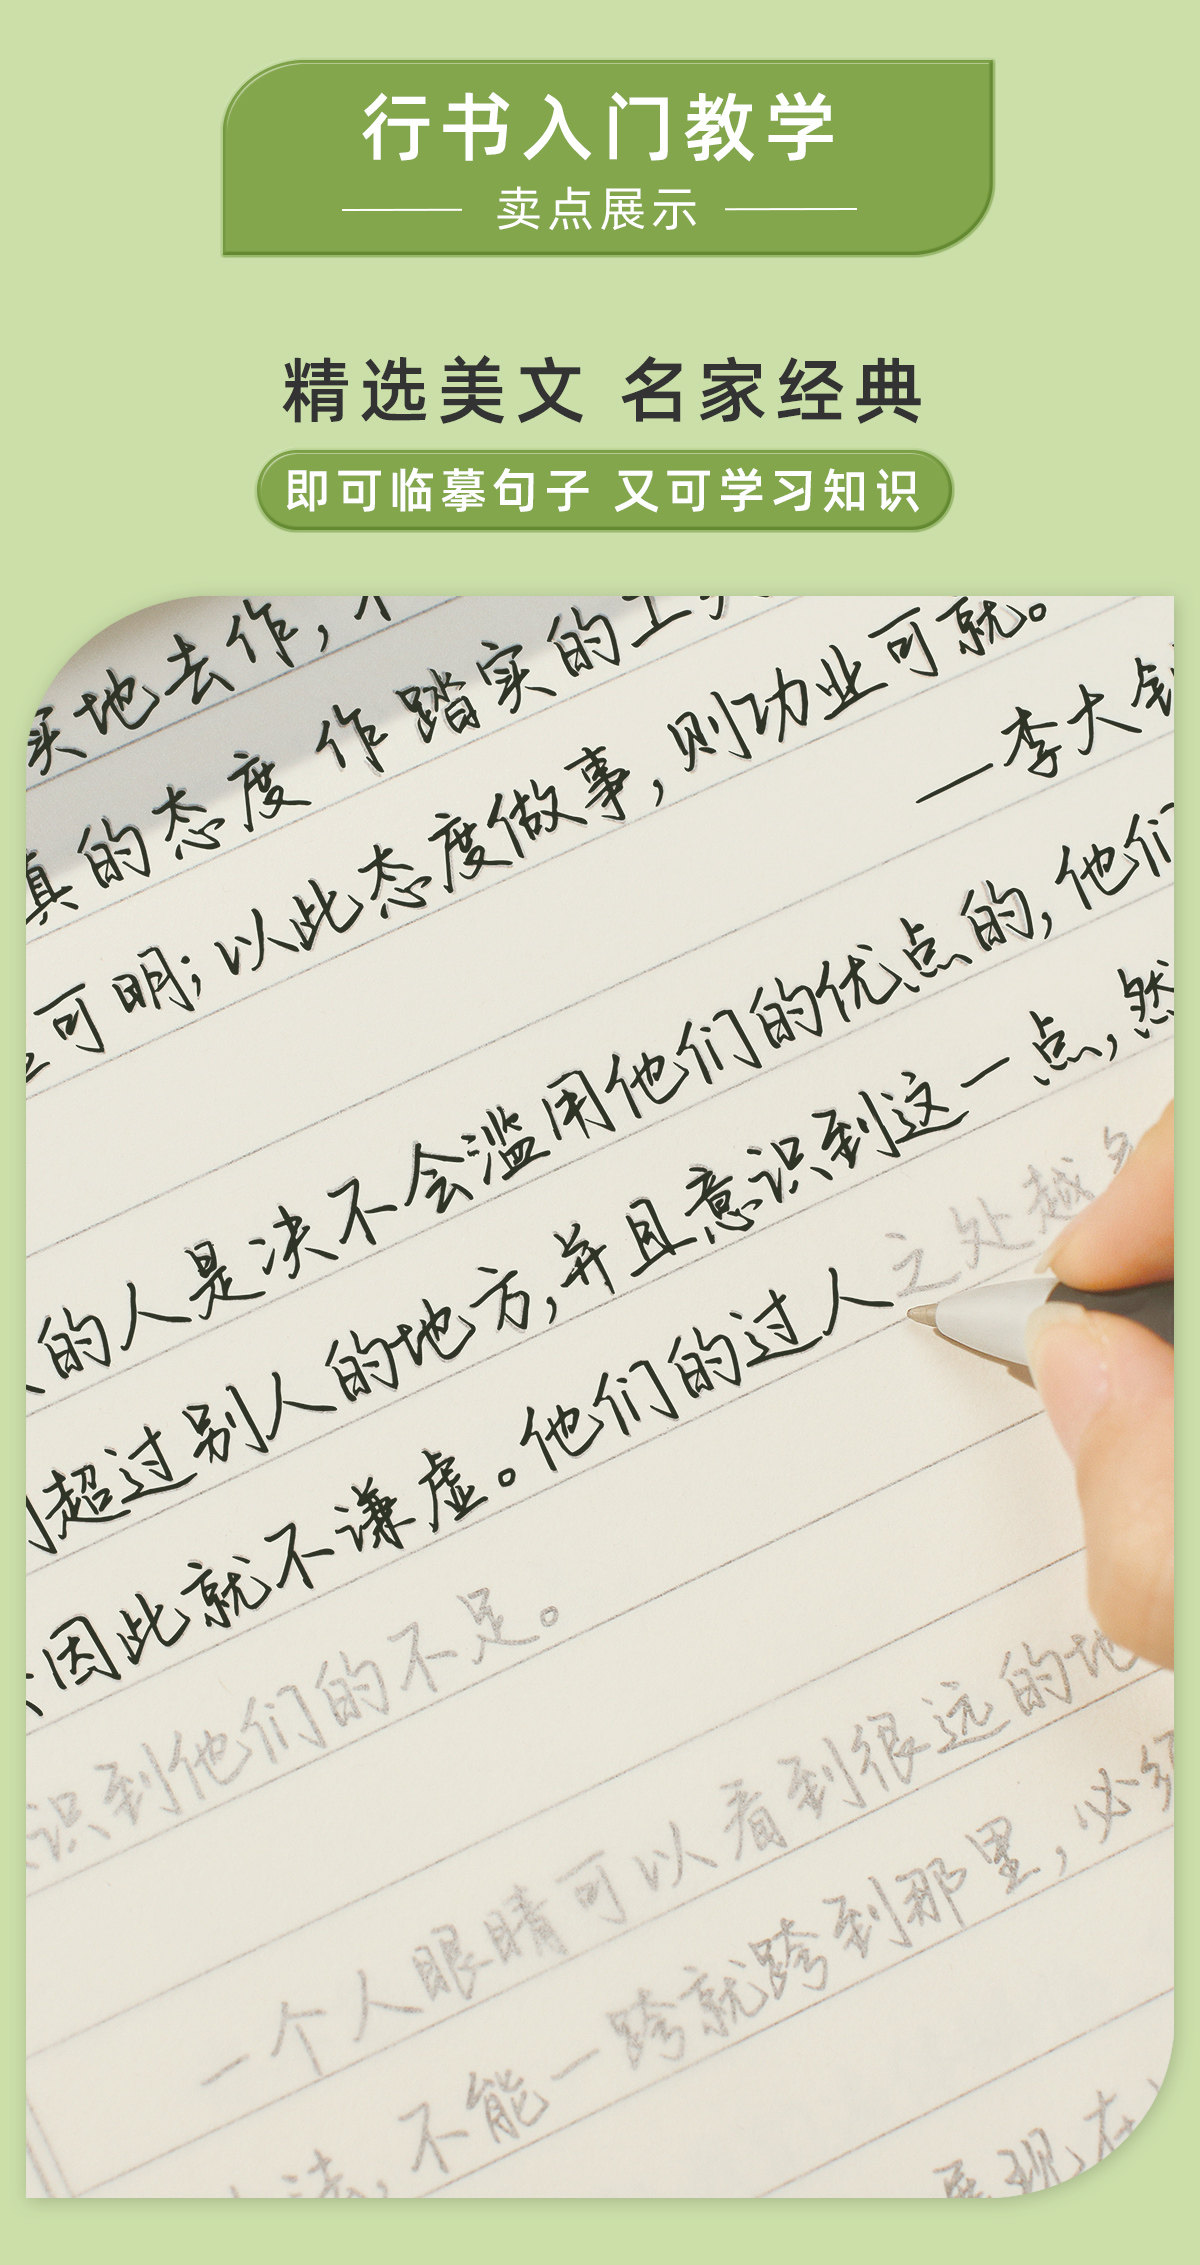 行书入门教学
卖点展示
精选美文 名家经典
即可临摹句子 又可学习知识
实地去作,
真的态度作踏实的工
可明;以此态度做事,则功业可就。
—李大钊
的人是决不会滥用他们的优点的,他们
超过别人的地方,并且意识到这一点,然
因此就不谦虚。他们的过人之处越
识到他们的不足。
一个人眼睛可以看到很远的地
法,不能一跨就跨到那里,必须
展现在